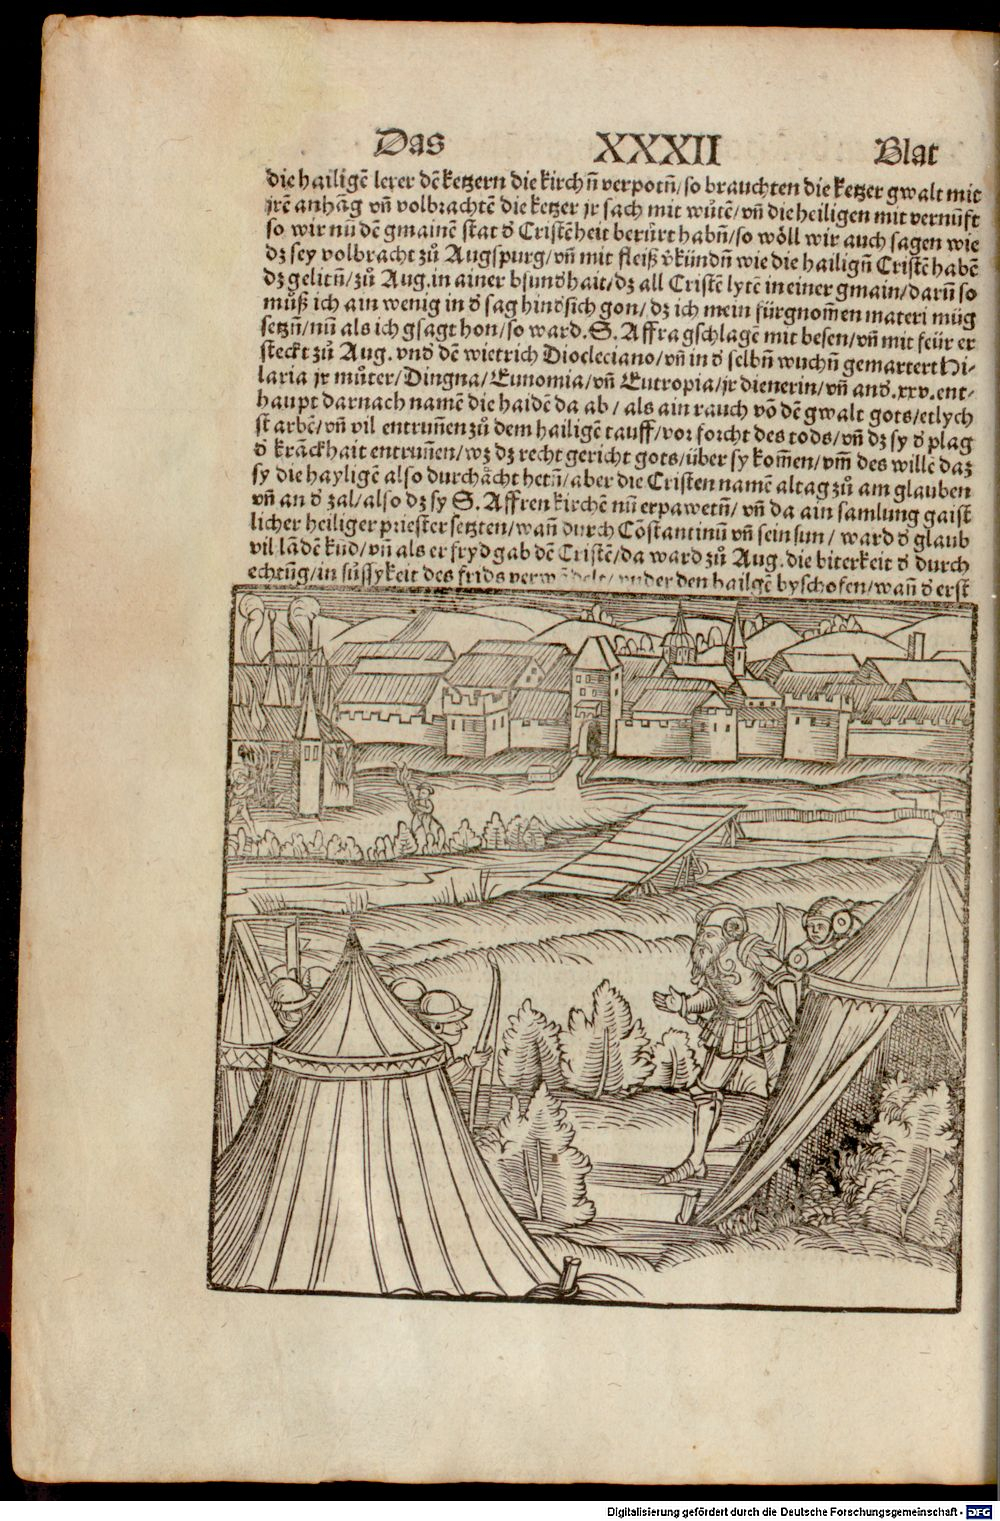 Das XXXII Blat
die hailigē lerer dē ketzern die kirch ñ verpotñ/ so brauchten die ketzer gwalt mit
jrē anhāg vñ volbrachtē die ketzer jr sach mit wůtē/ vñ die heiligen mit vernūft
so wir nū dē gmainē stat ď Cristēheit berůrt habñ/ so wöll wir auch sagen wie
dz sey volbracht zů Augspurg/ vñ mit fleiß v̊kündñ wie die hailigñ Cristē habē
dz gelitñ/ zů Aug. in ainer bsunďhait/ dz all Cristē lytē in einer gmain/ darū so
můß ich ain wenig in ď sag hinďsich gon/ dz ich mein fürgnom̄en materi müg
setzñ/ nū als ich gsagt hon/ so ward. S. Affra gschlagē mit besen/ vñ mit feür er
steckt zů Aug. vnď dē wietrich Diocleciano/ vñ in ď selbñ wuchñ gemartert Hi-
laria jr můter/ Dingna/ Eunomia/ vñ Eutropia/ jr dienerin/ vñ anď. xxv. ent-
haupt darnach namē die haidē da ab/ als ain rauch vō dē gwalt gots/ etlych
starbē/ vñ vil entrun̄en zů dem hailigē tauff/ vor forcht des tods/ vñ dz sy ď plag
ď krāckhait entrun̄en/ wz dz recht gericht gots/ über sy kom̄en/ vm̄ des willē daz
sy die hayligē also durchåcht hetñ/ aber die Cristen namē altag zů am glauben
vñ an ď zal/ also dz sy S. Affren kirchē nū erpawetñ/ vñ da ain samlung gaist
licher heiliger priester setzten/ wañ durch Cōstantinū vñ sein sun/ ward ď glaub
vil lādē kūd/ vñ als er fryd gab dē Cristē/ da ward zů Aug. die biterkeit ď durch
echtūg/ in sůssykeit des frids verwādelt/ vnder den hailgē byschofen/ wañ ď erst
Digitalisierung gefördert durch die Deutsche Forschungsgemeinschaft - DFG